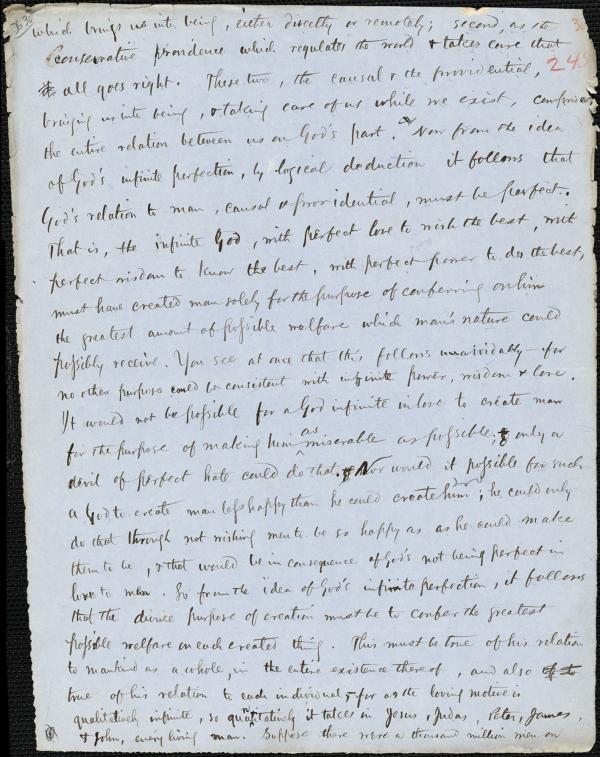 which brings us into being, either directly or remotely; second, as the
conservative providence which regulates the world & takes care that
all goes right. These two, the causal & the providential,
245
bringing us into being, & taking care of us while we exist, comprises
the entire relation between us on God's part. Now from the idea
of God's infinite perfection, by logical deduction it follows that
God's relation to man, causal & providential, must be perfect.
That is, the infinite God, with perfect love to wish the best, with
perfect wisdom to know the best, with perfect power to do the best,
must have created man solely for the purpose of conferring on him
the greatest amount of possible welfare which man's nature could
possibly receive. You see at once that this follows unavoidably for
no other purpose could be consistent with infinite power, wisdom & love.
It would not be possible for a God infinite in love to create man
for the purpose of making him as miserable as possible; only a
devil of perfect hate could do that. Nor would it possible for such
a God to create man less happy than he could create him; he could only
do that through not wishing men to be so happy as as he could make
them to be, & that would be in consequence of God's not being perfect in
love to men. So from the idea of God's infinite perfection, it follows
that the divine purpose of creation must be to confer the greatest
possible welfare on each created thing. This must be true of his relation
to mankind as a whole, in the entire existence thereof, and also
true of his relation to each individual, for as the loving motive is
qualitatively infinite, so quantitatively it takes in Jesus, Judas, Peter, James,
& John, every living man. Suppose there were a thousand million men on